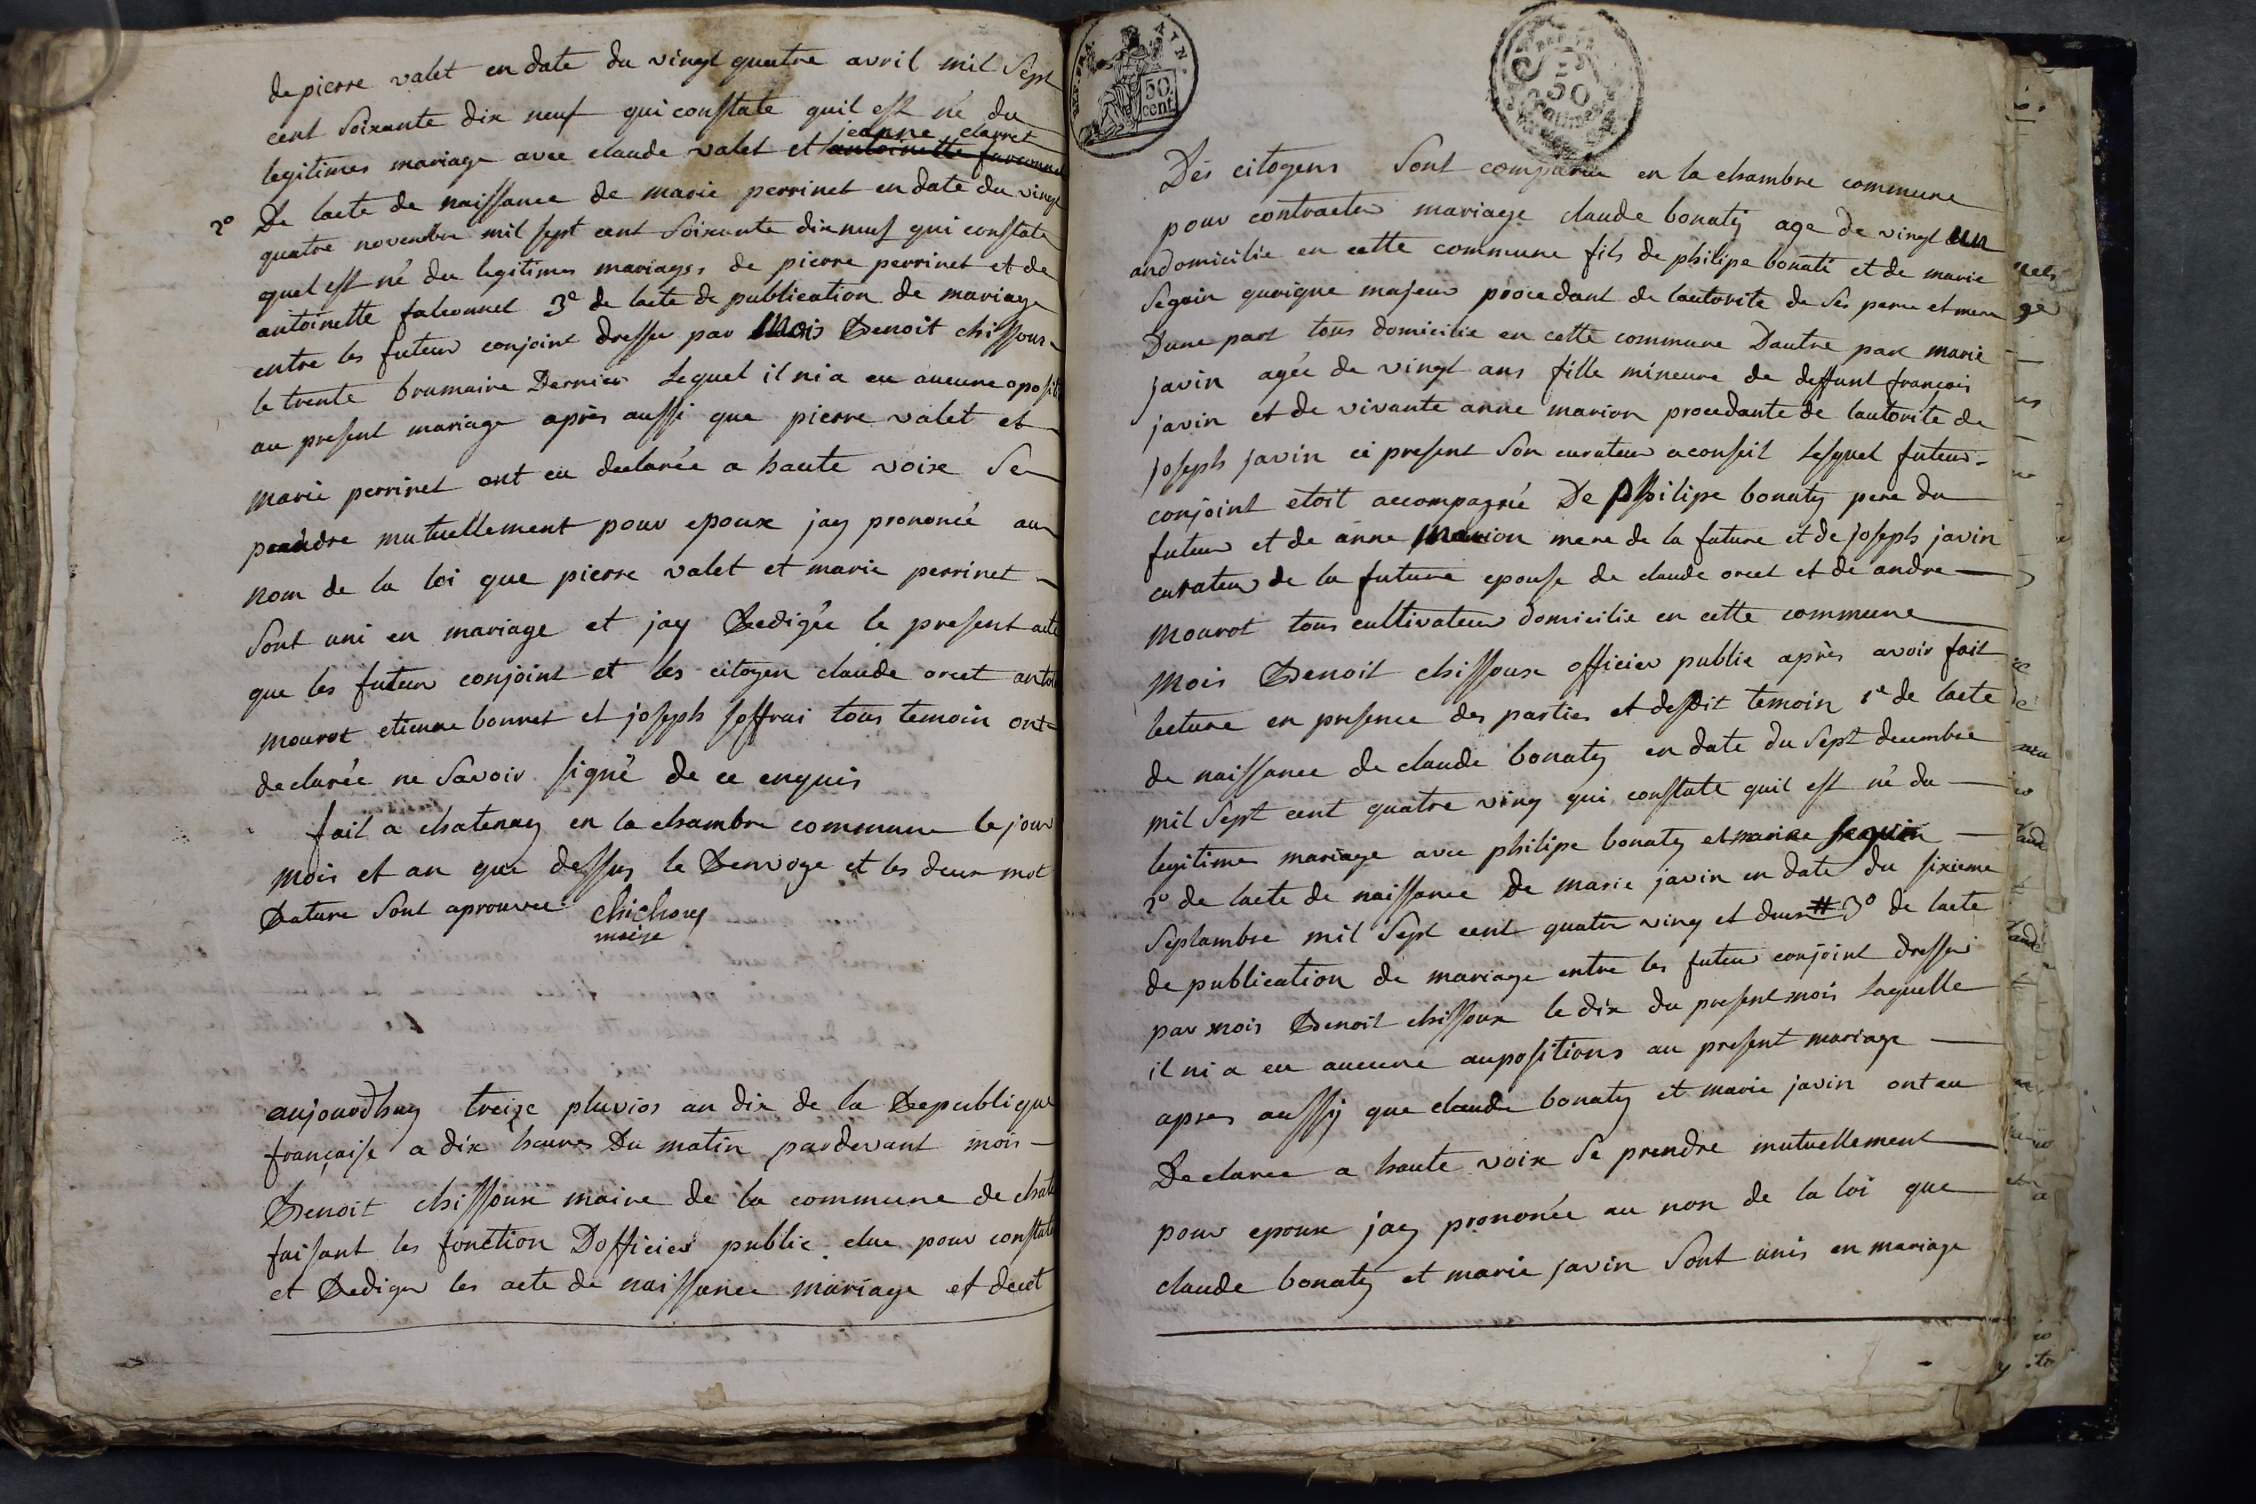 de pierre valet en date du vingt quatre avril mil Sept
cent Soixante dix neuf qui constate quil est né du
jeanne clarret
legitimes mariage avec claude valet et antoinette
2° De lacte de naissance de marie perrinet en date du vingt
quatre novembre mil sept cent Soixante dix neuf qui constate
quel est né du legitimes mariages de pierre perrinet et de
antoinette falconnet 3e de lacte de publication de mariage
entre les futeur conjoint dresser par mois Benoit chissoux
le trente brumaire Dernier Lequel il ni a eu aucune oposit
au present mariage après aussi que pierre valet et
marie perrinet ont eu declarée a haute voix Se
prendre mutuellement pour epoux jay prononcée au
nom de la loi que pierre valet et marie perrinet
Sont uni en mariage et jay Redigée le present acte
que les futeur conjoint et les citoyen claude orcet
mourot etienne bonnet et joseph joffrai tous temoin ont
declarée ne Savoir signé de ce enquis
fait a chatenay en la chambre commune le jour
mois et an que dessus le Renvoye et les deux mot
Rature Sont aprouvee chichoux
maire
aujourdhuy treize pluvios an dix de la Republique
française a dix heures Du matin pardevant mois
Benoit chissoux maire de la commune de chate
faisant les fonction Dofficier public elue pour constate
et Rediger les acte de naissance mariage et decet
50
cent
50
Des citogens Sont comparue en la chambre commune
pour contracter mariage claude bonaty age de vingt un
an domicilie en cette commune fils de philipe bonati et de marie
Seguin quoique majeur procedant de lautorite de Ses perre et mere
Dune part tous domicilie en cette commune Dautre part marie
javin agée de vingt ans fille mineure de deffunt françois
javin et de vivante anne marion procedante de lautorite de
joseph javin ci present Son curateur a conseil Lesquel futeur
conjoint etoit accompagné De philipe bonaty pere du
futeur et de anne Marion mere de la future et de joseph javin
curateur de la future epouse de claude orcet et de andre
mourot tous cultivateur domicilie en cette commune
mois Benoit chissoux officier public après avoir fait
lecture en presence des parties et desdit temoin 1e de lacte
de naissance de claude bonaty en date du Sept decembre
mil Sept cent quatre ving qui constate quil est né du
legitime mariage avec philipe bonaty et marie Seguin
2° de lacte de naissance de marie javin en date du sixieme
Septambre mil Sept cent quater ving et deux # 3° de lacte
de publication de mariage entre les futeur conjoint dresser
par mois Benoit chissoux le dix du present mois Laquelle
il ni a eu aucune aupositions au present mariage
apres aussy que claude bonaty et marie javin ont eu
Declaree a haute voix Se prendre mutuellement
pour epoux jay prononée au non de la loi que
claude bonaty et marie javin Sont unis en mariage